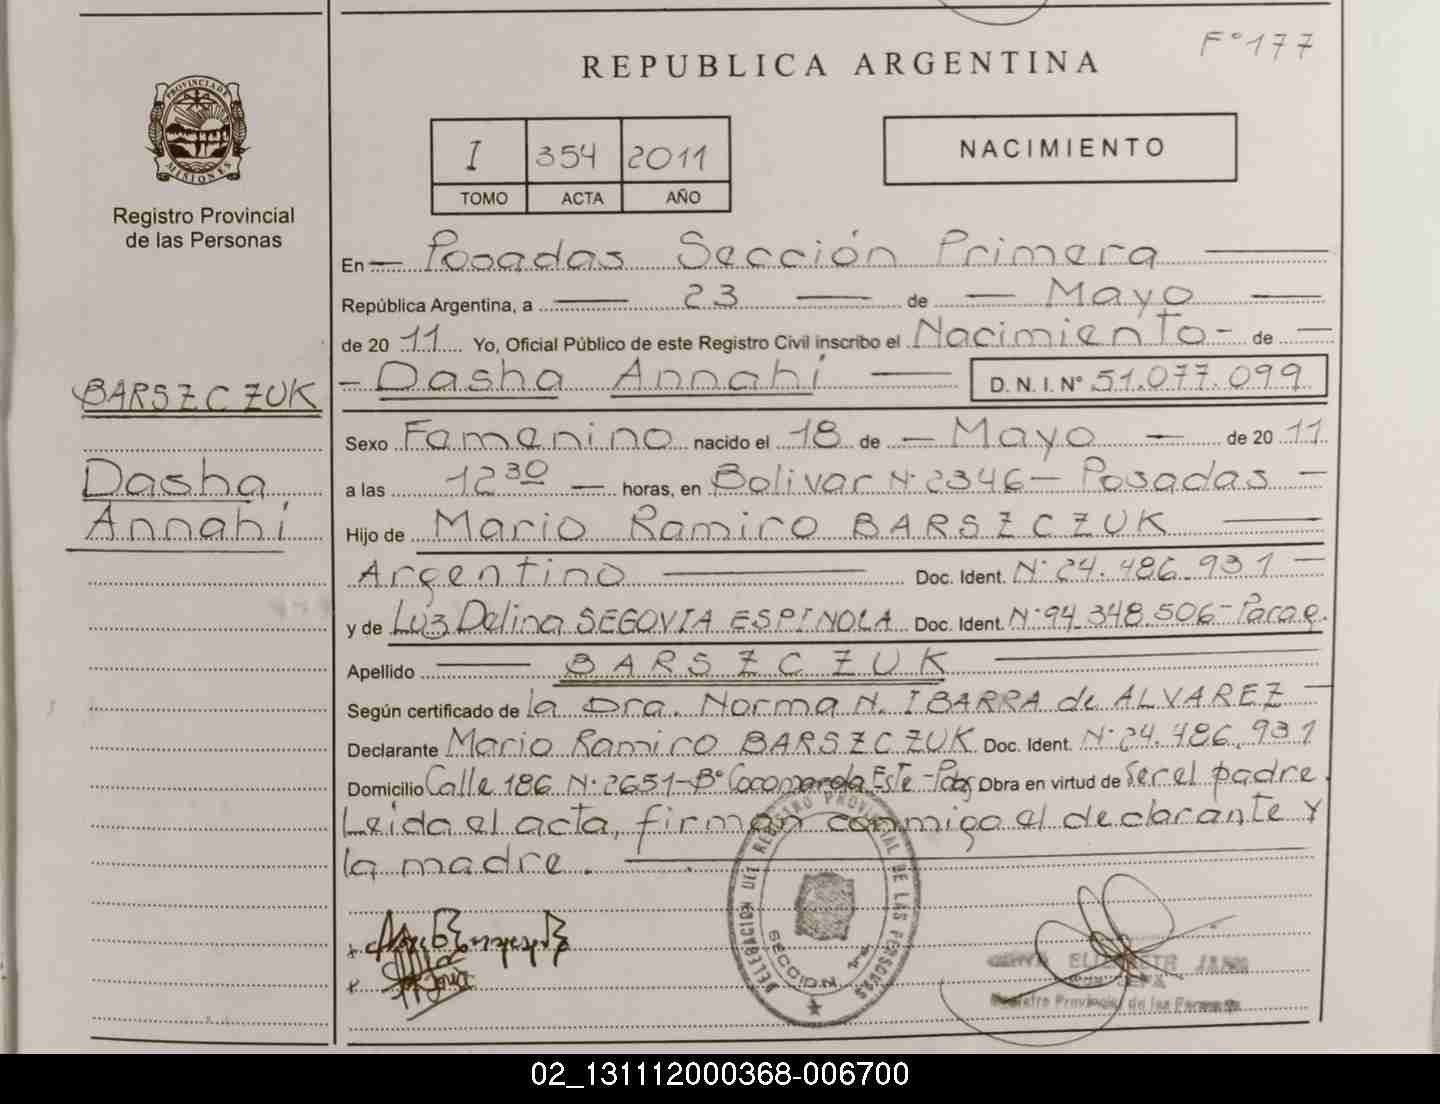 F° 177
REPUBLICA ARGENTINA
PROVINCIA DE
MISIONES
Registro Provincial
de las Personas
I 354 2011
TOMO ACTA AÑO
NACIMIENTO
En Posadas Sección Primera
República Argentina, a 23 de Mayo
de 20 11 Yo, Oficial Público de este Registro Civil inscribo el Nacimiento de
Dasha Annahí D. N. I. N° 51.077.099
BARSZCZUK
Dasha
Annahí
Sexo Femenino nacido el 18 de Mayo de 20 11
a las 12 30 horas, en Bolivar N° 2346 - Posadas
Hijo de Mario Ramiro BARSZCZUK
Argentino Doc. Ident. N° 24.486.931
y de Luz Delina SEGOVIA ESPINOLA Doc. Ident. N° 94.348.506 - Parag.
Apellido BARSZCZUK
Según certificado de la Dra. Norma N. IBARRA de ALVAREZ
Declarante Mario Ramiro BARSZCZUK Doc. Ident. N° 24.486.931
Domicilio Calle 186 N° 2651 - B° Cocomarola Este - Pdas Obra en virtud de ser el padre.
Leida el acta, firman conmigo el declarante y
la madre.
DELEGACION DEL REGISTRO PROVINCIAL DE LAS PERSONAS
SECCION 1ra
ELIZABETH
JEFA
Registro Provincial de las Personas
02_131112000368-006700